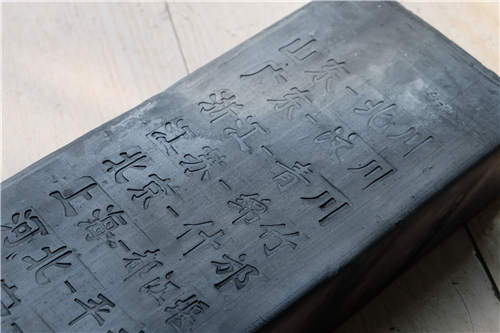 山东-北川
广东-汶川
浙江-青川
江苏-绵竹
北京-什邡
上海-都江堰
河北-平